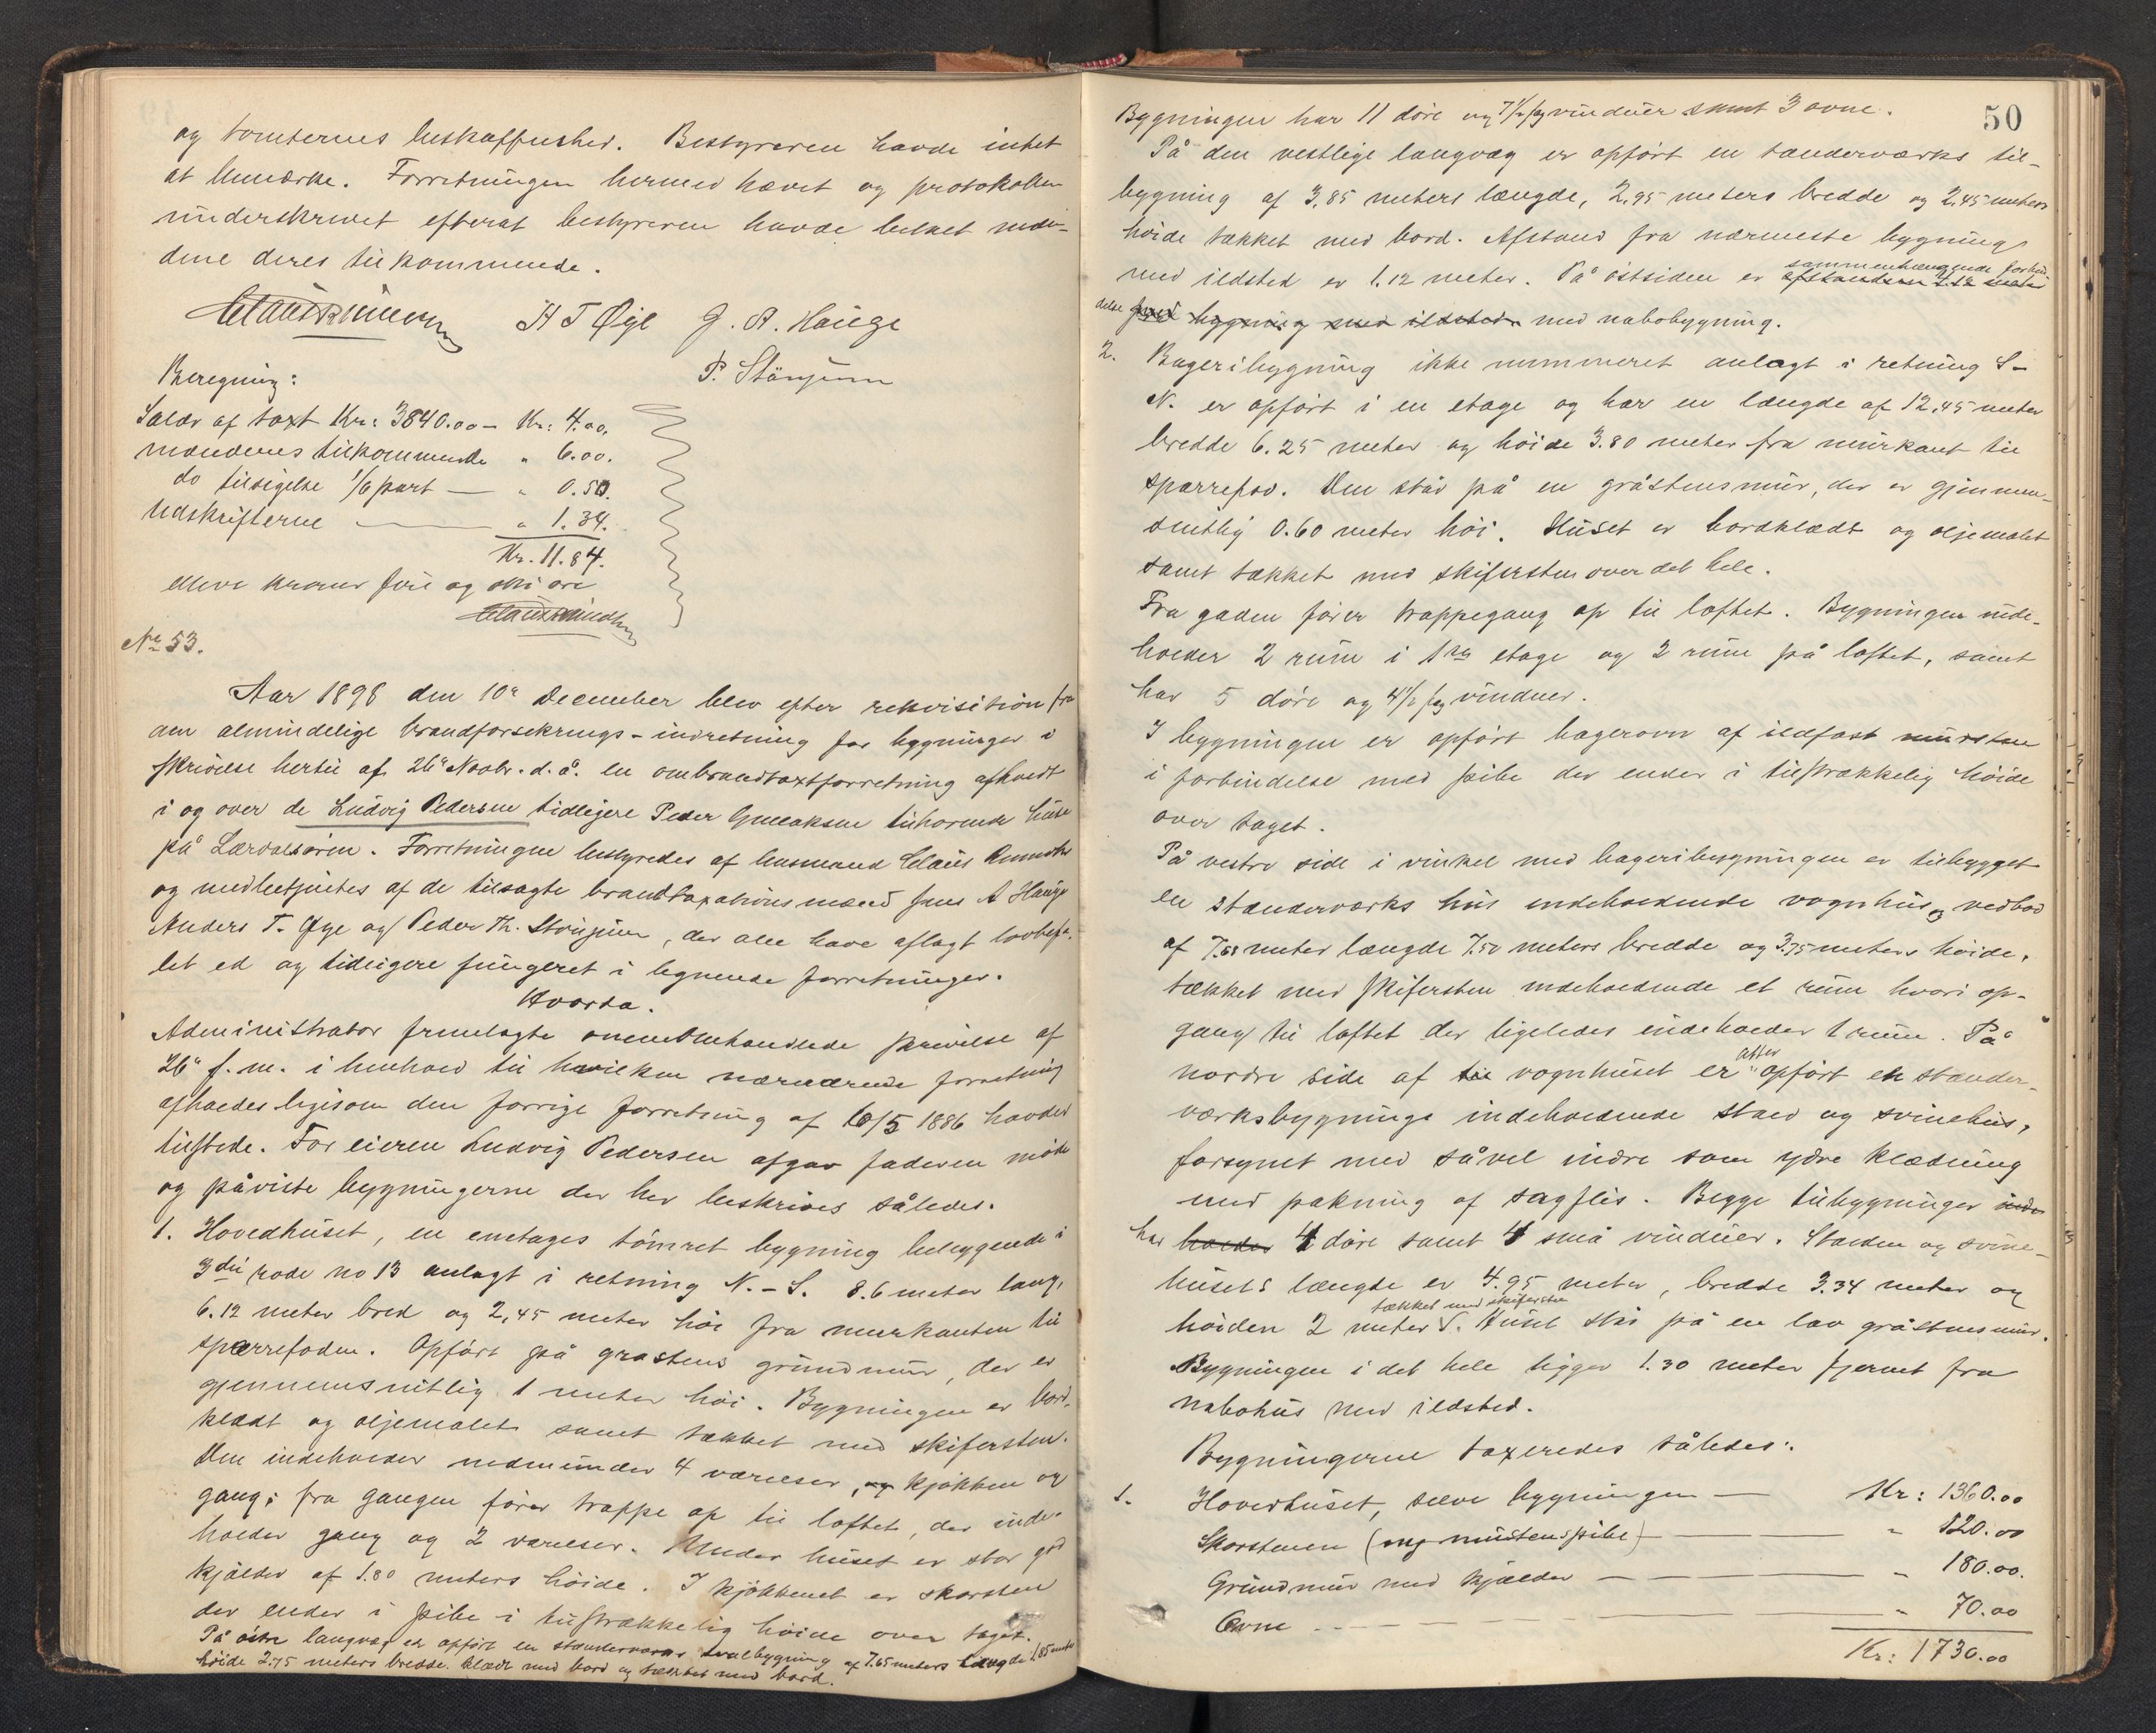 og tomternes beskaffenhed. Bestyreren havde intet
at bemærke. Forretningen hermed hævet og protokollen
underskrevet efterat bestyreren havde betalt mæn-
dene deres tilkommende.
H T Øye J. A. Hauge
P. Stönjum
Beregning:
Salær af taxt Kr: 3840.00 – Kr: 4.00.
mændenes tilkommende " 6.00.
do tilsigelse 1/6 part — " 0.50.
Udskrifterne — " 1.34.
Kr. 11.84.
elleve kroner fire og otti øre
No 53.
Aar 1898 den 10de December blev efter rekvisition fra
den almindelige brandforsikrings-indretning for bygninger i
skrivelse hertil af 26de Novbr. d. å. en ombrandtaxtforretning afholdt
i og over de Ludvig Pedersen tidligere Peder Gullaksen tilhørende huse
på Lærdalsøren. Forretningen bestyredes af lensmand Claus
og medbetjentes af de tilsagte brandtaxationsmænd Jens A Hauge
Anders T. Øye og Peder Th. Stönjum, der alle have aflagt lovbefa-
let ed og tidligere fungeret i lignende forretninger.
Hvorda.
Administrator fremlagte ovenombehandlede skrivelse af
26de f. m. i henhold til hvilken nærværende forretning
afholdes ligesom den forrige forretning af 10/5 1886 havdes
tilstede. For eieren Ludvig Pedersen afgav faderen møde
og påviste bygningerne der her beskrives således.
1. Hovedhuset, en enetages tømret bygning beliggende i
3die rode no 13 anlagt i retning N. – S. 8.6 meter lang,
6.12 meter bred og 2,45 meter høi fra murkanten til
sparrefoden. Opført på grastens grundmur, der er
gjennemsnitlig 1 meter høi. Bygningen er bord-
klædt og oljemalet samt tækket med skifersten.
Den indeholder nedenunder 4 værelser, og kjøkken og
gang; fra gangen fører trappe op til loftet, der inde-
holder gang og 2 værelser. Under huset er stor god
kjælder af 1.80 meters høide. I kjøkkenet er skorsten
der ender i pibe i tilstrækkelig høide over taget.
På østre langvæg er opført en stænderværks tilbygning af 7.65 meters længde 1.85 meter
høide 2.75 meters bredde klædt med bord og tækket med bord.
50
Bygningen har 11 døre og 7 1/2 fag vinduer samt 3 ovne.
På den vestlige langvæg er opført en standerværks til-
bygning af 3,85 meters længde, 2,95 meters bredde og 2,45 meters
høide tækket med bord. Afstand fra nærmeste bygning
med ildsted er 1.12 meter. På østsiden er sammenhængende forbin-
delse med nabobygning.
2. Bageribygning ikke nummeret anlagt i retning S –
N. er opført i en etage og har en længde af 12,45 meter
bredde 6.25 meter og høide 3.80 meter fra murkant til
sparrefod. Den står på en gråstensmur, der er gjennem-
snitlig 0.60 meter høi. Huset er bordklædt og oljemalet
samt tækket med skifersten over det hele.
Fra gaden fører trappegang op til loftet. Bygningen inde-
holder 2 rum i 1ste etage og 2 rum på loftet, samt
har 5 døre og 4 1/2 fag vinduer.
I bygningen er opført bagerovn af ildfast mursten
i forbindelse med pibe der ender i tilstrækkelig høide
over taget.
På vestre side i vinkel med bageribygningen er tilbygget
en stænderværks hus indeholdende vognhus og vedbod
af 7.68 meter længde 7.50 meters bredde og 3.75 meters høide,
tækket med skifersten indeholdende et rum hvori op-
gang til loftet der ligeledes indeholder 1 rum. På
nordre side af til vognhuset er atter opført en stander-
værksbygninge indeholdende stald og svinehus,
forsynet med såvel indre som ydre klædning
med pakning af sagflis. Begge tilbygninger inde
har holder 4 døre samt 4 små vinduer. Stalden og svine-
husets længde er 4.95 meter, bredde 3.34 meter og
høiden 2 meter tækket med skifersten. Huset står på en lav gråstensmur.
Bygningen i det hele ligger 1.30 meter fjernet fra
nabohus med ildsted.
Bygningerne taxeredes således:
1. Hovedhuset, selve bygningen — Kr: 1360.00
Skorstenen (og murstenspibe) — " 120.00
Grundmur med kjælder — " 180.00.
Ovne — " 70.00
Kr: 1730.00